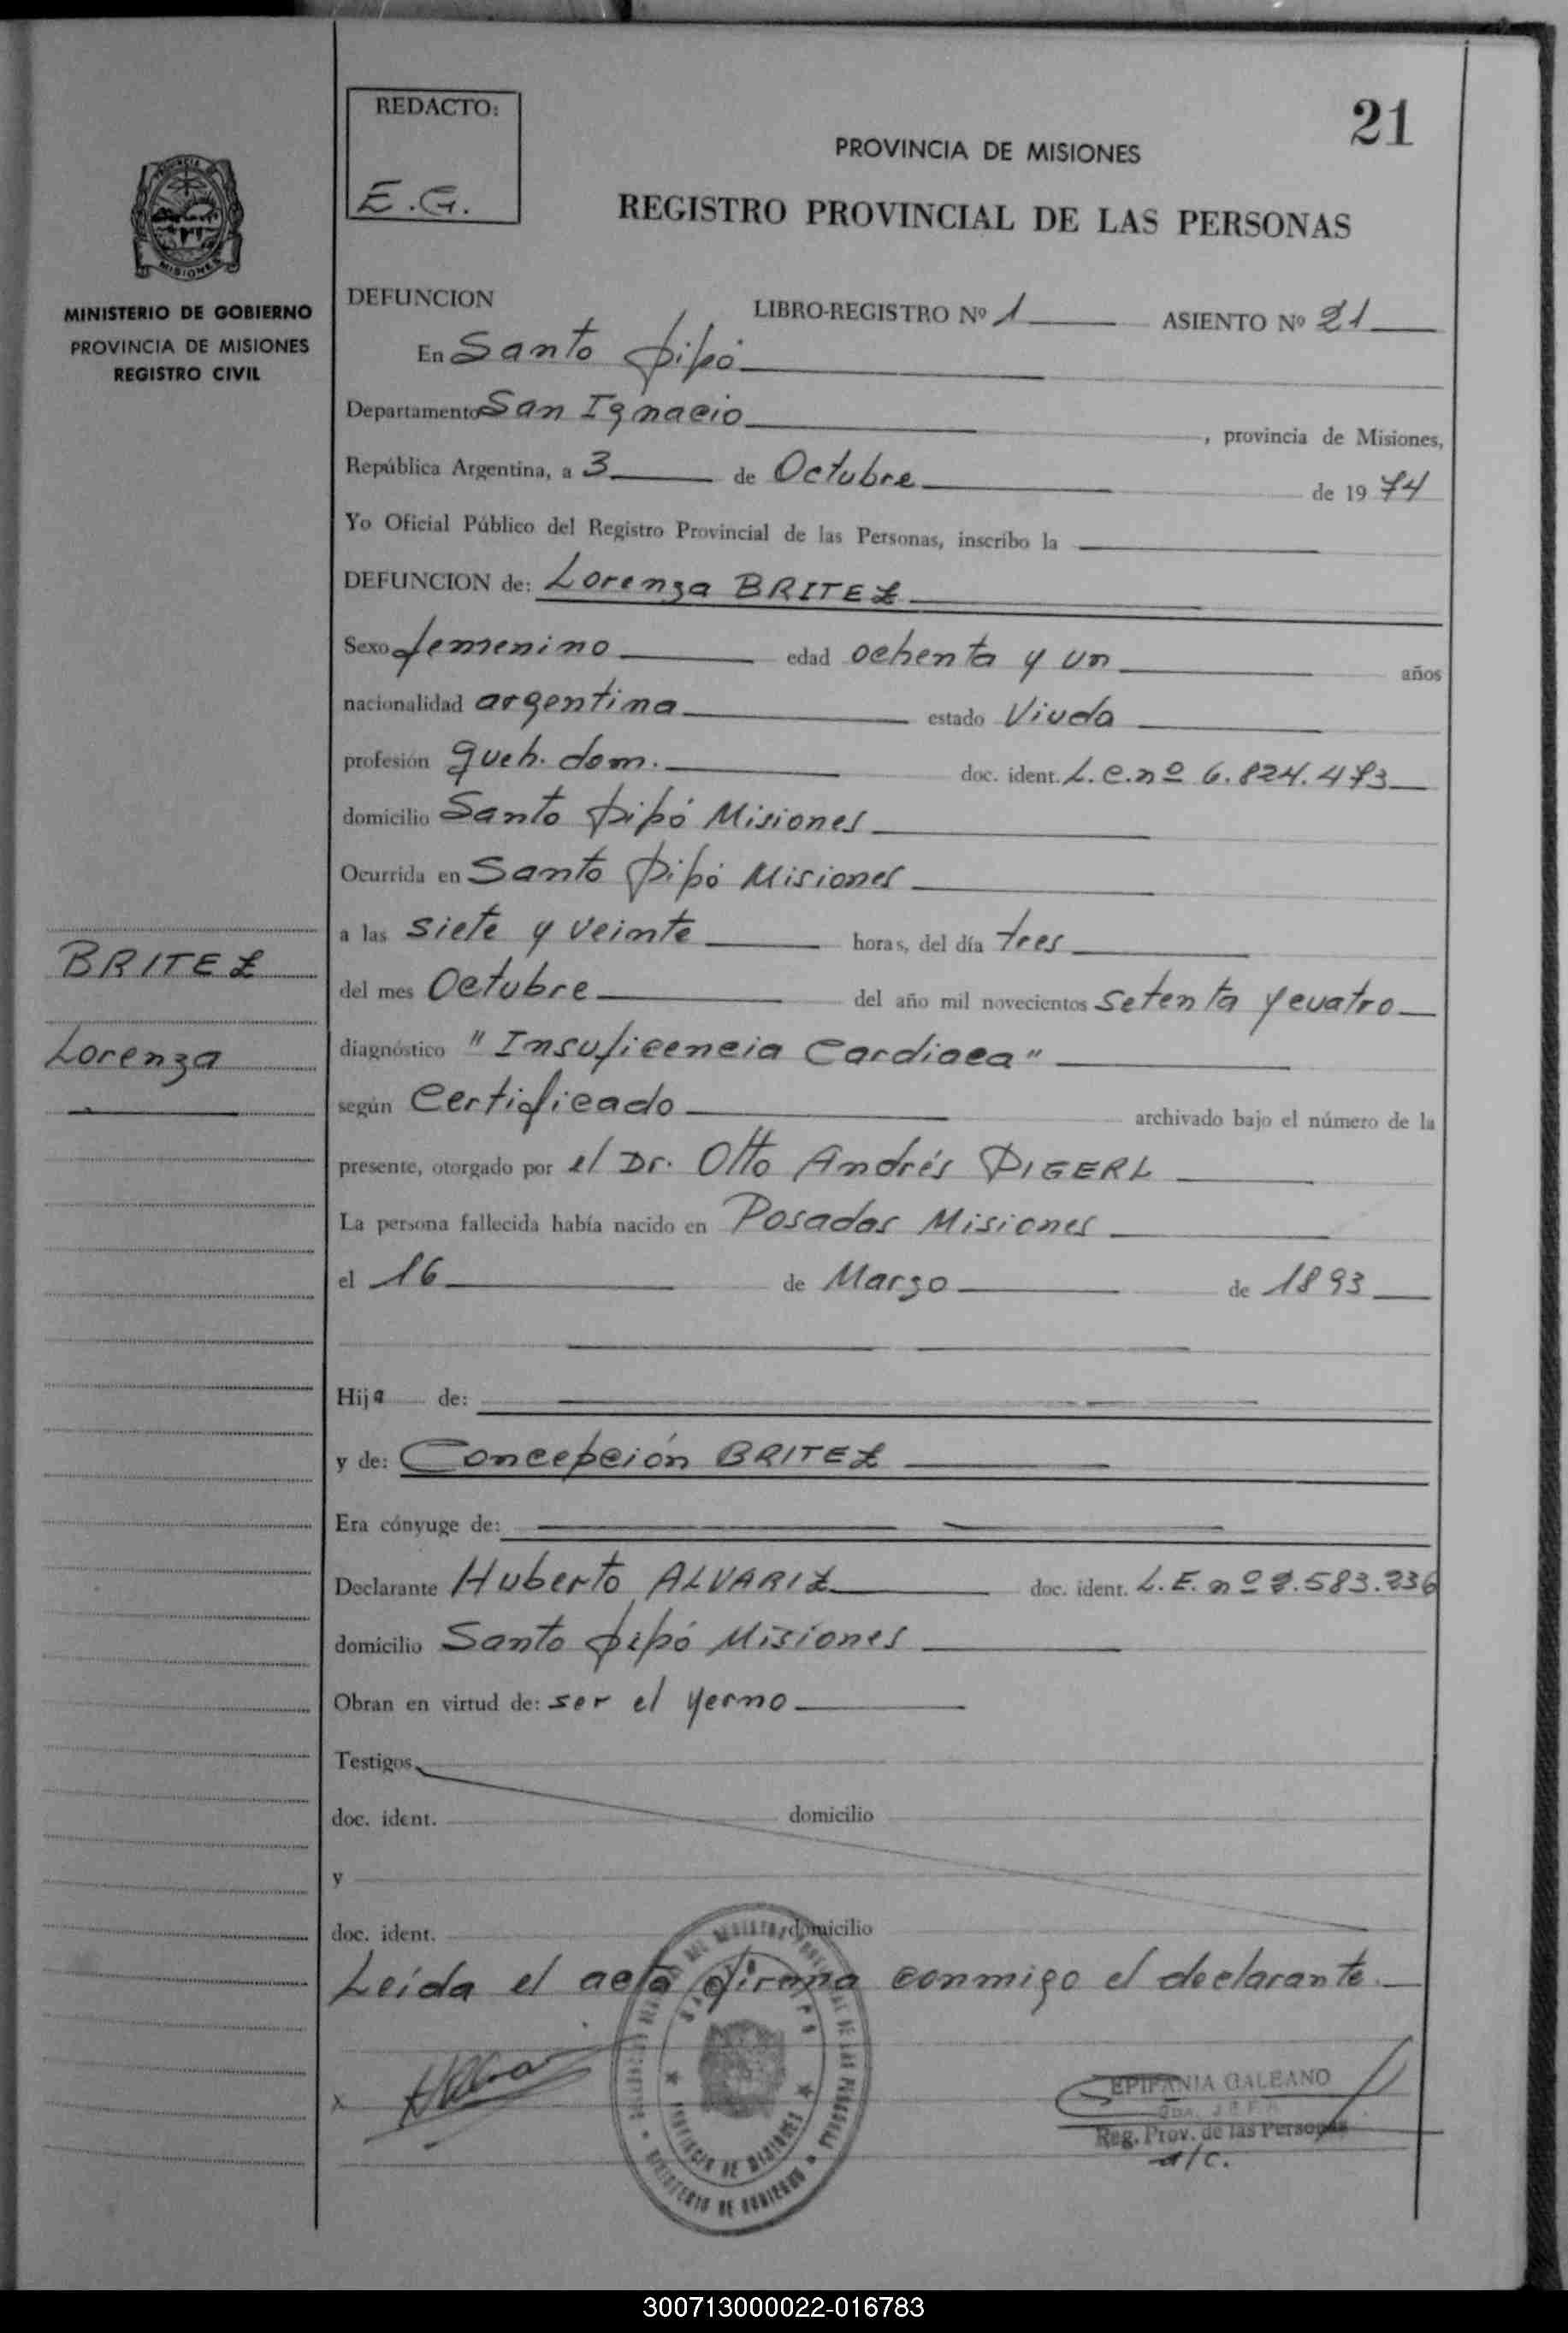 REDACTO:
E.G.
21
PROVINCIA DE MISIONES
REGISTRO PROVINCIAL DE LAS PERSONAS
MISIONES
MINISTERIO DE GOBIERNO
PROVINCIA DE MISIONES
REGISTRO CIVIL
DEFUNCION LIBRO-REGISTRO Nº 1 ASIENTO Nº 21
En Santo Pipó
Departamento San Ignacio, provincia de Misiones,
República Argentina, a 3 de Octubre de 1974
Yo Oficial Público del Registro Provincial de las Personas, inscribo la
DEFUNCION de: Lorenza BRITEZ
Sexo femenino edad ochenta y un años
nacionalidad argentina estado Viuda
profesión queh. dom. doc. ident. L.C.nº 6.824.473
domicilio Santo Pipó Misiones
Ocurrida en Santo Pipó Misiones
a las siete y veinte horas, del día tres
BRITEZ
del mes Octubre del año mil novecientos setenta y cuatro
Lorenza
diagnóstico "Insuficencia Cardiaca"
según Certificado archivado bajo el número de la
presente, otorgado por el Dr. Otto Andrés PIGERL
La persona fallecida había nacido en Posadas Misiones
el 16 de Marzo de 1893
Hija de:
y de: Concepción BRITEZ
Era cónyuge de:
Declarante Huberto ALVARIZ doc. ident. L.E. nº 7.583.236
domicilio Santo Pipó Misiones
Obran en virtud de: ser el yerno
Testigos
doc. ident. domicilio
y
doc. ident. domicilio
Leida el acta firma conmigo el declarante.
x
PROVINCIA DE MISIONES
MINISTERIO DE GOBIERNO
EPIFANIA GALEANO
Reg. Prov. de las Personas
a/c.
300713000022-016783